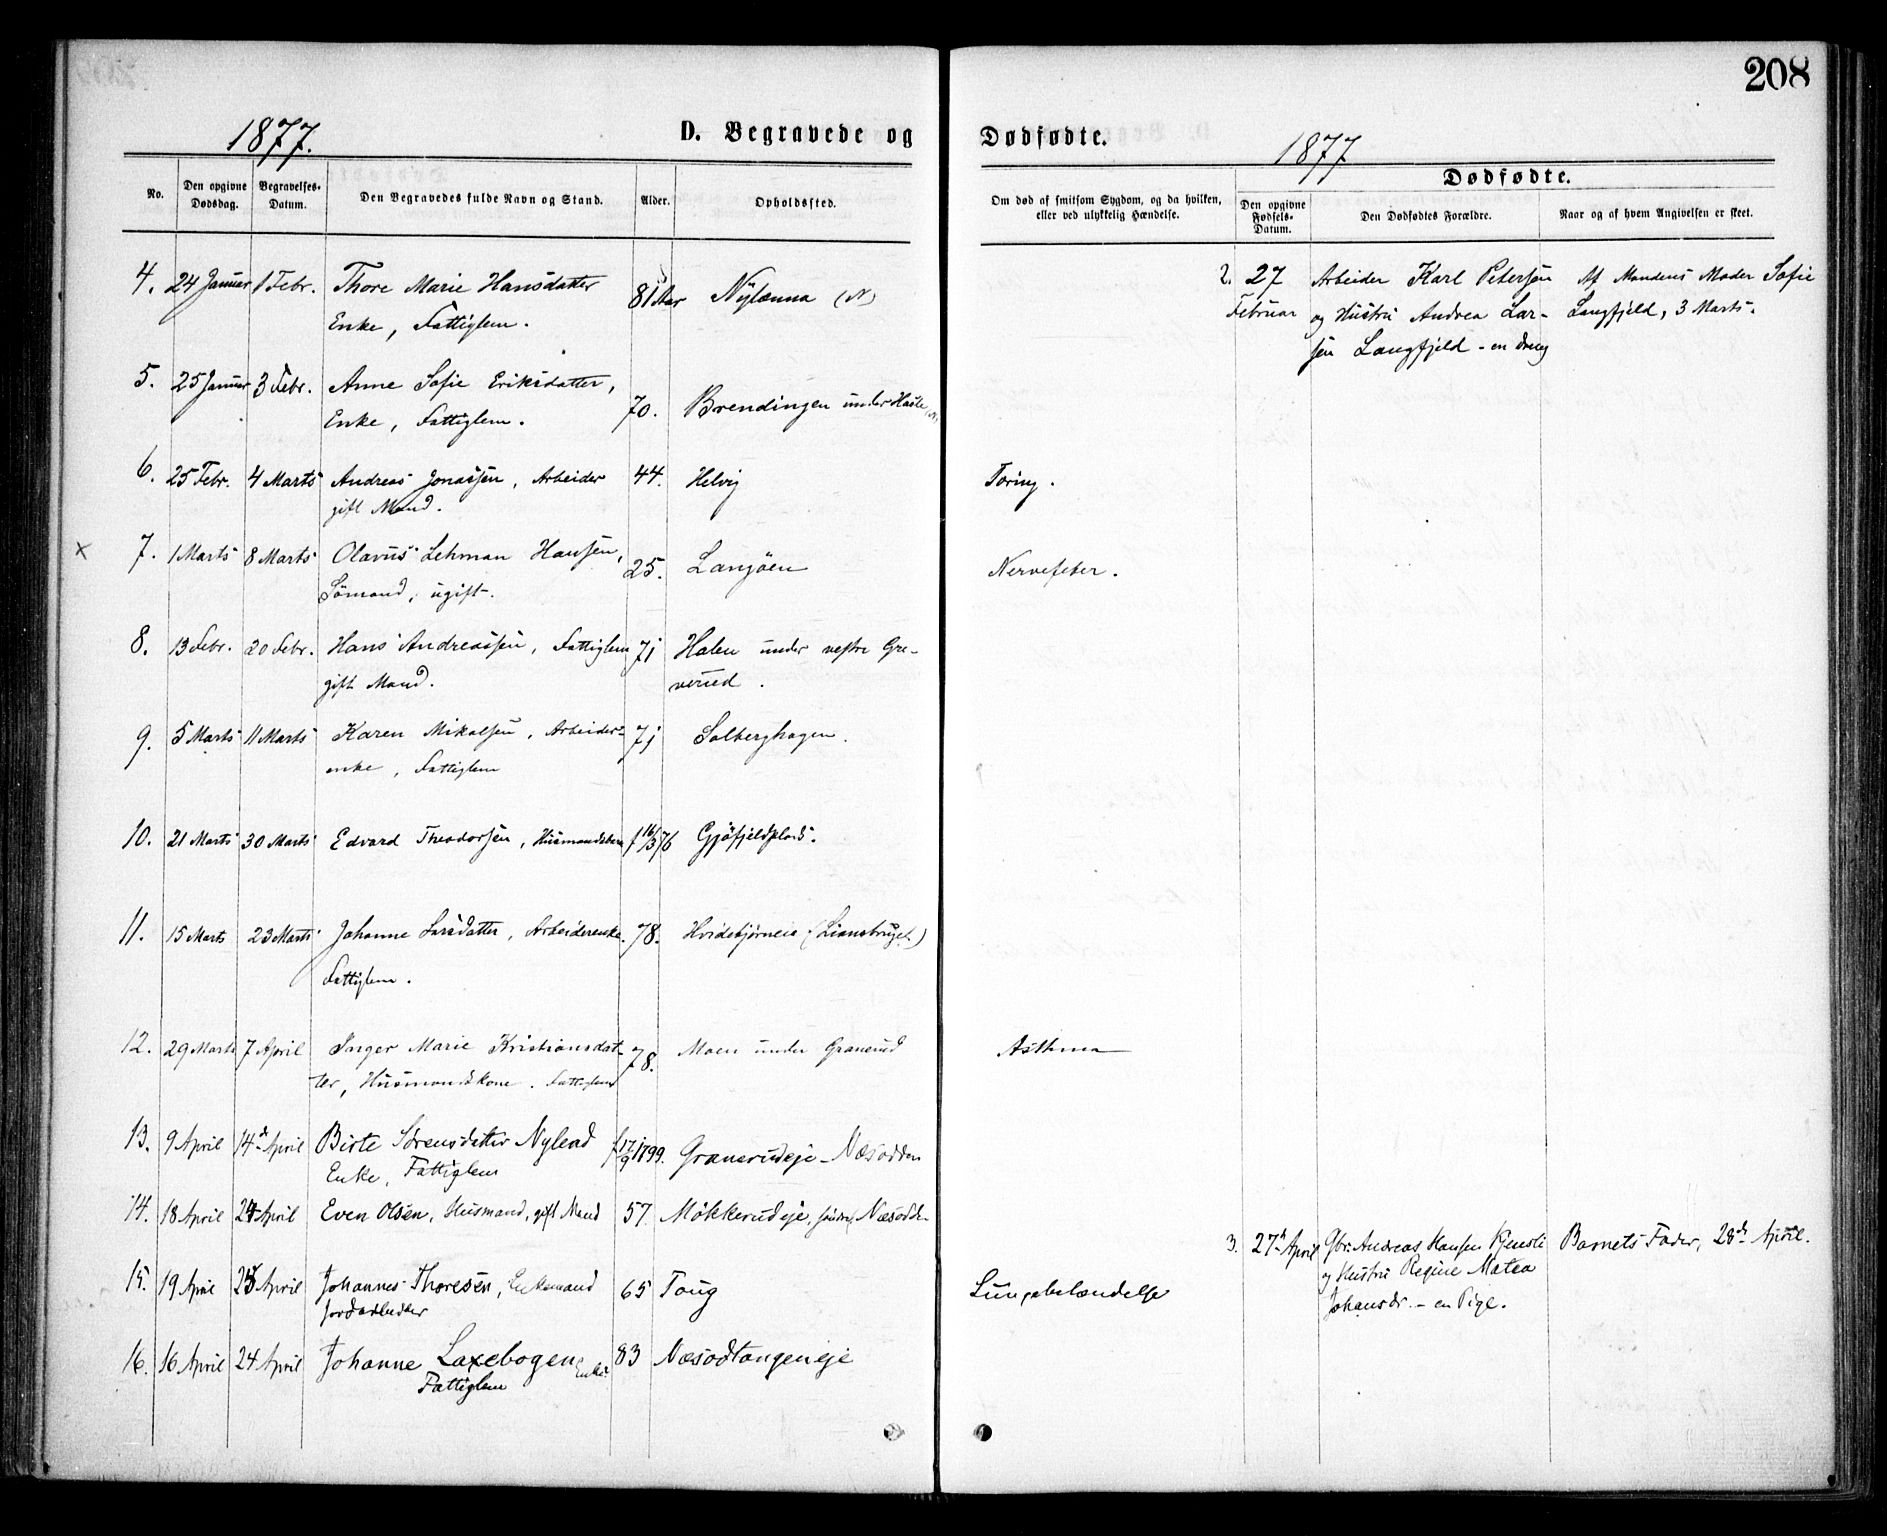 208
1877.
D. Begravede og
Dødfødte.
1877
Dødfødte.
No.
Den opgivne Dødsdag.
Begravelses-Datum.
Den Begravedes fulde Navn og Stand.
Alder.
Opholdssted.
Om død af smitsom Sygdom, og da hvilken, eller ved ulykkelig Hændelse.
Den opgivne Fødsels-Datum.
Den Dødfødtes Forældre.
Naar og af hvem Angivelsen er skeet.
4. 24 Januar 1 Febr. Thore Marie Hansdatter 81 Aar Nylænna (N)
Enke, Fattiglem.
5. 25 Januar 3 Febr. Anne Sofie Eriksdatter, 70. Brendingen under Hasle (N)
Enke, Fattiglem.
6. 25 Febr. 4 Marts Andreas Jonassen, Arbeider 44. Helvig Tæring.
gift Mand.
7. 1 Marts 8 Marts Olavus Lehman Hansen, 25. Langøen Nervefeber.
Sømand, ugift.
8. 13 Febr. 20 Febr. Hans Andreassen, Fattiglem 71 Halen under vestre Gre-
gift Mand. verud.
9. 5 Marts 11 Marts Karen Mikalsen, Arbeider- 71 Solberghagen.
enke, Fattiglem
10. 21 Marts 30 Marts Edvard Theodorsen, Husmandsbarn f 16/3 76 Gjøfjeldplads.
11. 15 Marts 23 Marts Johanne Larsdatter, Arbeiderenke. 78. Hvidebjørneie (Liansbruget)
Fattiglem.
12. 29 Marts 7 April Inger Marie Kristiansdat- 78. Moen under Granerud Asthma
ter, Husmandskone. Fattiglem
13. 9 April 14de April Birte Sørensdatter Nylend f 17/9 1799. Granerudeje - Næsodden
Enke, Fattiglem
14. 18 April 24 April Even Olsen, Husmand, gift Mand 57. Møkkerudeje, søndre, Næsodden
15. 19 April 25 April Johannes Thoresen, Enkemand 65 Toug Lungebetændelse
Jordarbeider
16. 16 April 24 April Johanne Laxebogen Enke. 83 Næsodtangeneje
Fattiglem
2. 27 Arbeider Karl Petersen Af Mandens Moder Sofie
Februar og Hustru Andrea Lar- Langfjeld, 3 Marts.
sen Langfjeld - en dreng
3. 27de April Gbr. Andreas Hansen Kjensli Barnets Fader, 28de April.
og Hustru Regine Matea
Johansdr. - en Pige.